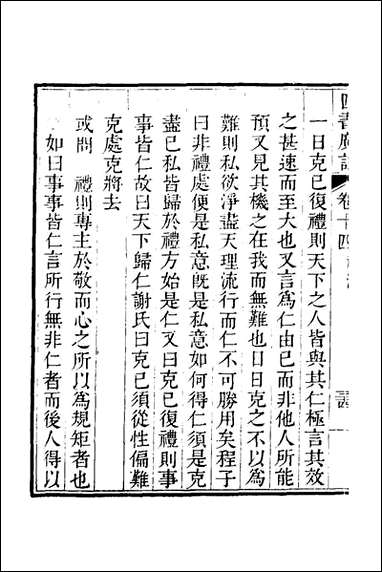 卷十四
一日克己復禮則天下之人皆與其仁極言其效
之甚速而至大也又言爲仁由己而非他人所能
預又見其機之在我而無難也日日克之不以爲
難則私欲淨盡天理流行而仁不可勝用矣程子
曰非禮處便是私意旣是私意如何得仁須是克
盡己私皆歸於禮方始是仁又曰克己復禮則事
事皆仁故曰天下歸仁謝氏曰克己須從性偏難
克處克將去
或問 禮則專主於敬而心之所以爲規矩者也
如曰事事皆仁言所行無非仁者而後人得以